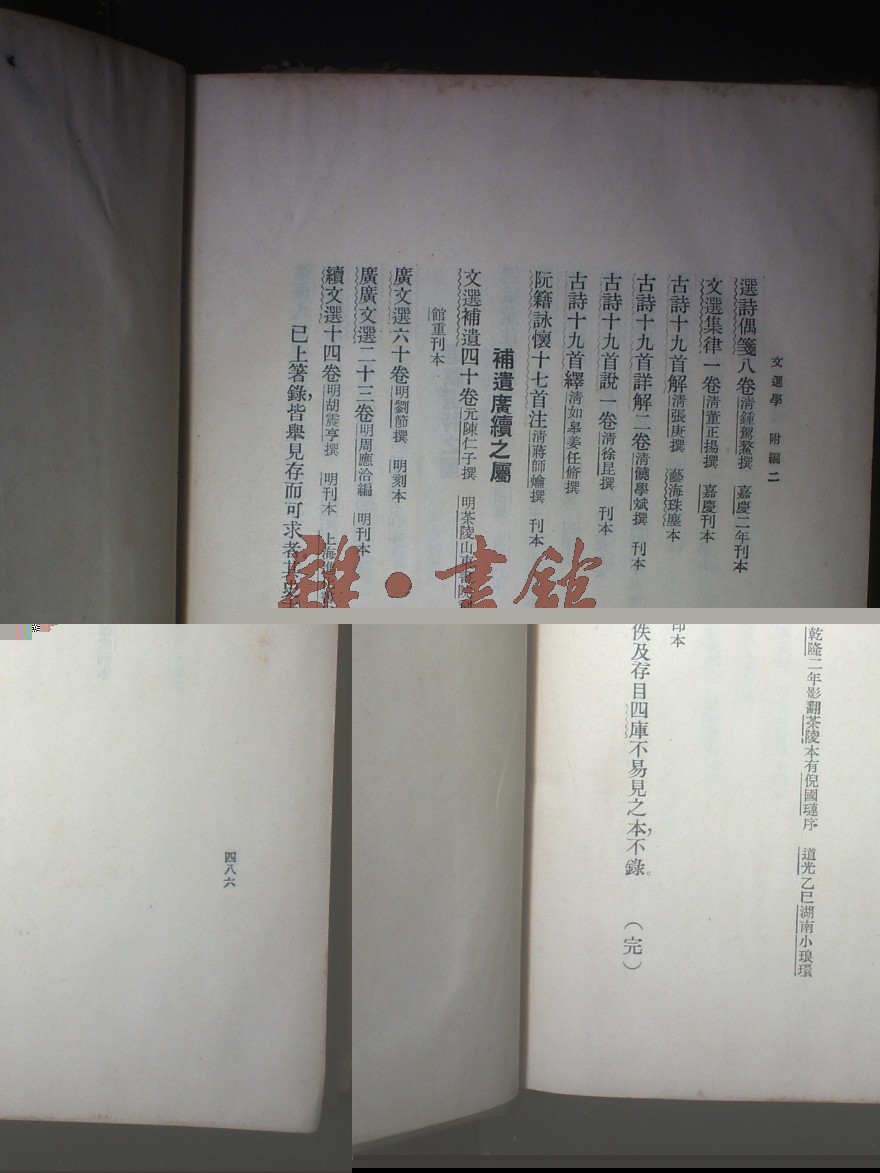 文選學 附編二
選詩偶箋八卷清鍾駕鼇撰 嘉慶二年刊本
文選集律一卷清董正揚撰 嘉慶刊本
古詩十九首解清張庚撰 藝海珠塵本
古詩十九首詳解二卷清饒學斌撰 刊本
古詩十九首說一卷清徐昆撰 刊本
古詩十九首繹清如皋姜任脩撰
阮籍詠懷十七首注清蔣師爚撰 刊本
補遺廣續之屬
文選補遺四十卷元陳仁子撰 明茶陵山東書院刻
館重刊本
廣文選六十卷明劉節撰 明刻本
廣廣文選二十三卷明周應治編 明刊本
續文選十四卷明胡震亨撰 明刊本 上海
已上箸錄,皆舉見存而可求者。其
雜·書館
四八六
乾隆二年影翻茶陵本有倪國璉序 道光乙巳湖南小琅環
印本
佚及存目四庫不易見之本,不錄。 (完)